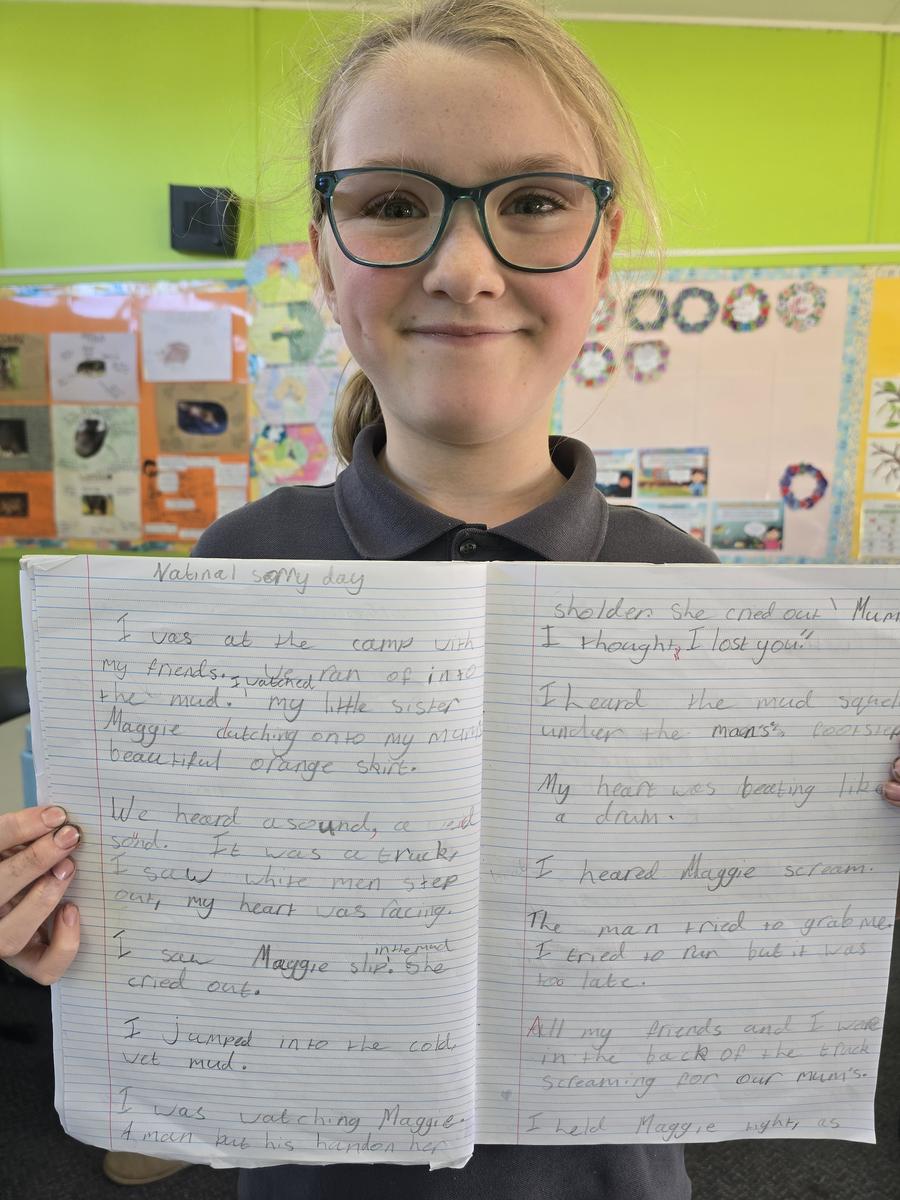 Natinal sorry day
I was at the camp with
my friends. We ran of into
the mud. I watched my little sister
Maggie clutching onto my mum's
beautiful orange skirt.
We heard a sound, a
sond. It was a truck,
I saw white men step
out, my heart was racing.
I saw Maggie slip in the mud. She
cried out.
I jumped into the cold,
wet mud.
I was watching Maggie.
A man but his hand on her
sholder. She cried out " Mum
I thought I lost you."
I heard the mud
under the man's footstep
My heart was beating like
a drum.
I heared Maggie scream.
The man tried to grab me.
I tried to run but it was
too late.
All my friends and I were
in the back of the truck
screaming for our mum's.
I held Maggie tight, as